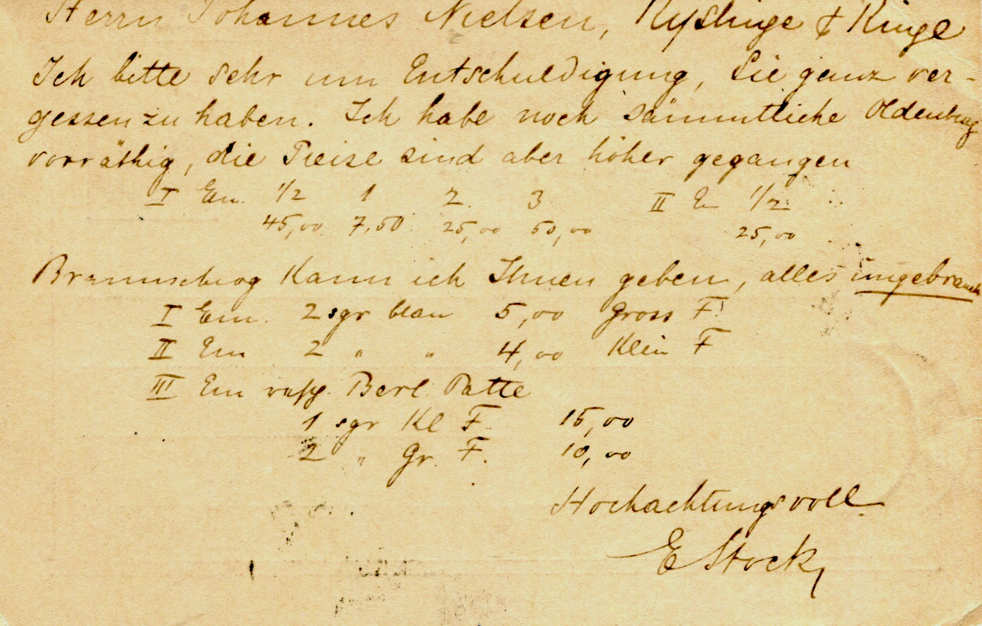 Herrn Johannes Nielsen, Ryslinge & Ringe
Ich bitte sehr um Entschuldigung, Sie ganz ver-
gessen zu haben. Ich habe noch sämmtliche Oldenburg
vorräthig, die Preise sind aber höher gegangen
I Em. 1/2 1 2 3 II Em 1/2
45,00 7,50 25,00 50,00 25,00
Braunschwg kann ich Ihnen geben, alles ungebrauch
I Em. 2 sgr blau 5,00 Gross F
II Em 2 " " 4,00 Klein F
III Em Berl. Patte
1 sgr Kl F. 15,00
2 " Gr. F. 10,00
Hochachtungsvoll
E Stock